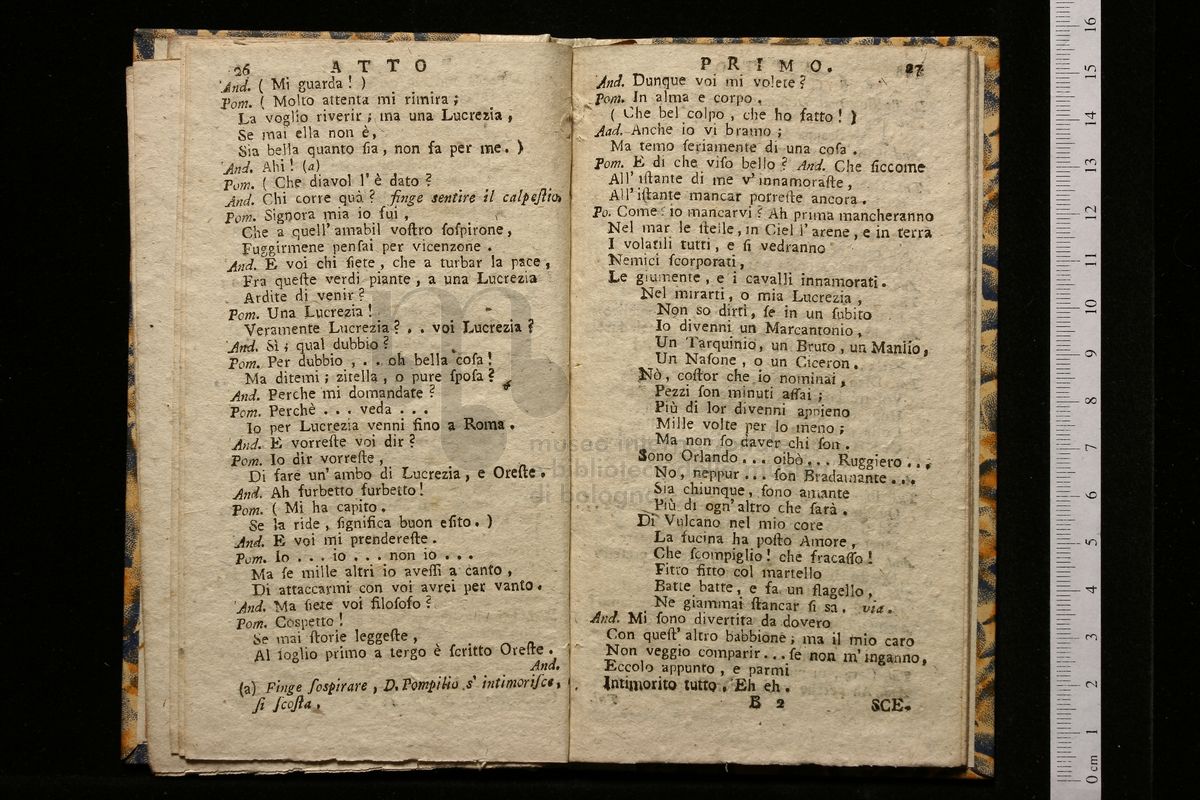 26 ATTO
And. ( Mi guarda ! )
Pom. ( Molto attenta mi rimira ;
La voglio riverir ; ma una Lucrezia ,
Se mai ella non è ,
Sia bella quanto ſia , non fa per me . )
And. Ahi ! (a)
Pom. ( Che diavol l' è dato ?
And. Chi corre quà ? finge sentire il calpeſtio.
Pom. Signora mia io fui ,
Che a quell' amabil voſtro ſoſpirone ,
Fuggirmene penſai per vicenzone .
And. E voi chi ſiete , che a turbar la pace ,
Fra queſte verdi piante , a una Lucrezia
Ardite di venir ?
Pom. Una Lucrezia !
Veramente Lucrezia ? . . voi Lucrezia ?
And. Sì ; qual dubbio ?
Pom. Per dubbio , . . oh bella coſa !
Ma ditemi ; zitella , o pure ſpoſa ?
And. Perche mi domandate ?
Pom. Perchè . . . veda . . .
Io per Lucrezia venni fino a Roma .
And. E vorreſte voi dir ?
Pom. Io dir vorreſte ,
Di fare un' ambo di Lucrezia , e Oreſte .
And. Ah furbetto furbetto !
Pom. ( Mi ha capito .
Se la ride , ſignifica buon eſito . )
And. E voi mi prendereſte .
Pom. Io . . . io . . . non io . . .
Ma ſe mille altri io aveſſi a canto ,
Di attaccarmi con voi avrei per vanto .
And. Ma ſiete voi filoſofo ?
Pom. Coſpetto !
Se mai ſtorie leggeſte ,
Al foglio primo a tergo è ſcritto Oreſte .
And.
(a) Finge ſoſpirare , D. Pompilio s' intimoriſce ,
ſi ſcoſta .
PRIMO. 27
And. Dunque voi mi volete ?
Pom. In alma e corpo .
( Che bel colpo , che ho fatto ! )
Aad. Anche io vi bramo ;
Ma temo ſeriamente di una coſa .
Pom. E di che viſo bello ? And. Che ſiccome
All' iſtante di me v' innamoraſte ,
All' iſtante mancar potreſte ancora .
Po. Come : io mancarvi ? Ah prima mancheranno
Nel mar le ſtelle , in Ciel l' arene , e in terra
I volatili tutti , e ſi vedranno
Nemici ſcorporati ,
Le giumente , e i cavalli innamorati .
Nel mirarti , o mia Lucrezia ,
Non so dirti , ſe in un ſubito
Io divenni un Marcantonio ,
Un Tarquinio , un Bruto , un Manlio ,
Un Naſone , o un Ciceron .
Nò , coſtor che io nominai ,
Pezzi ſon minuti aſſai ;
Più di lor divenni appieno
Mille volte per lo meno ;
Ma non ſo daver chi ſon .
Sono Orlando . . . oibò . . . Ruggiero . . .
No , neppur . . . ſon Bradamante . . .
Sia chiunque , ſono amante
Più di ogn' altro che ſarà .
Di Vulcano nel mio core
La fucina ha poſto Amore ,
Che ſcompiglio ! che fracaſſo !
Fitto fitto col martello
Batte batte , e fa un flagello ,
Ne giammai ſtancar ſi sa . via .
And. Mi ſono divertita da dovero
Con queſt' altro babbione ; ma il mio caro
Non veggio comparir . . . ſe non m' inganno ,
Eccolo appunto , e parmi
Intimorito tutto . Eh eh .
B 2 SCE.